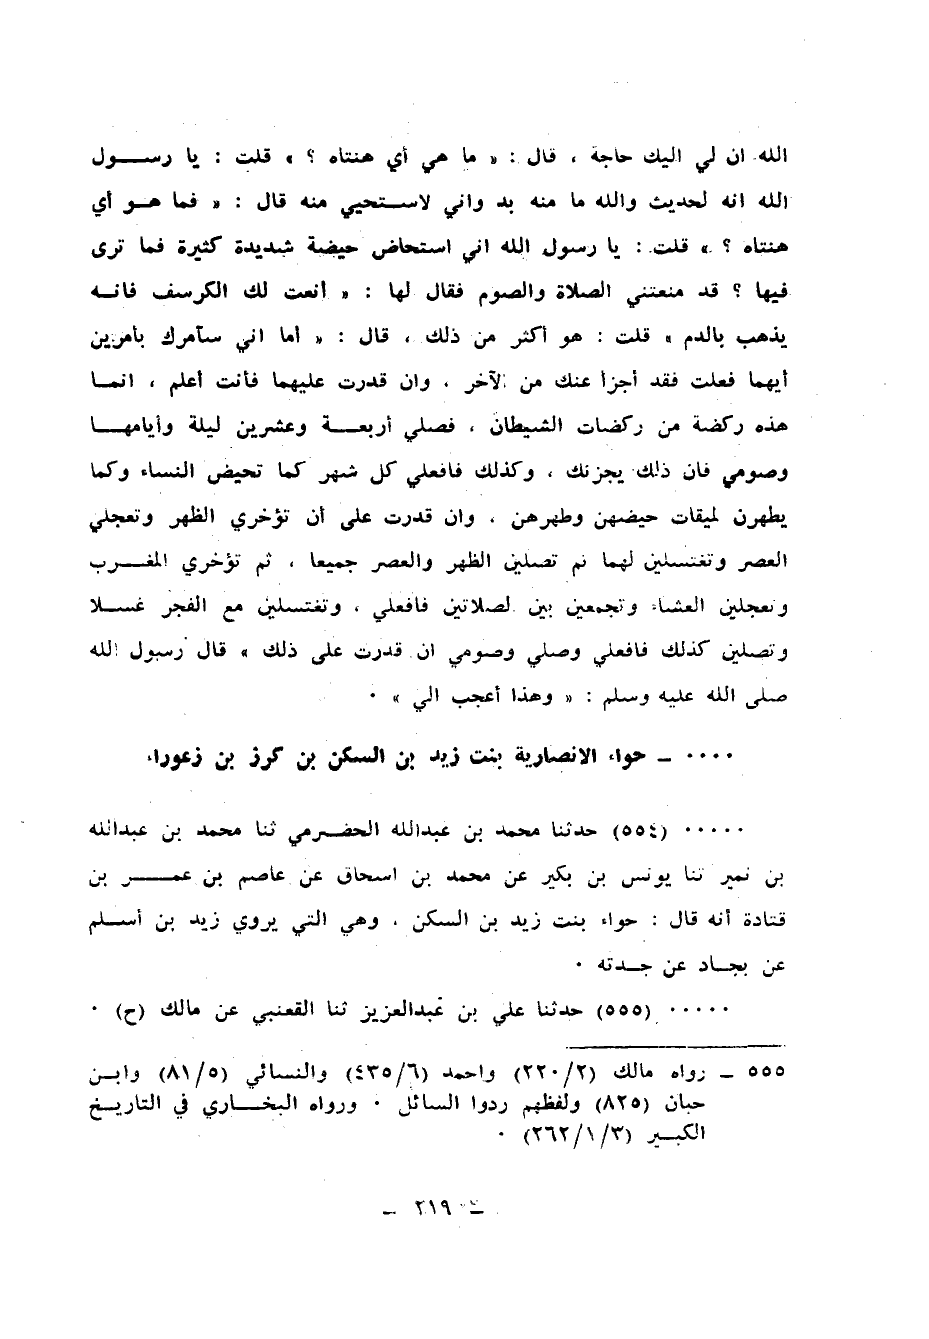 الله ان لي اليك حاجة ، قال : « ما هي أي هنتاه ؟ » قلت : يا رسول
الله انه لحديث والله ما منه بد واني لاستحيي منه قال : « فما هو أي
هنتاه ؟ » قلت : يا رسول الله اني استحاض حيضة شديدة كثيرة فما ترى
فيها ؟ قد منعتني الصلاة والصوم فقال لها : « أنعت لك الكرسف فانه
يذهب بالدم » قلت : هو أكثر من ذلك ، قال : « أما اني سآمرك بأمرين
أيهما فعلت فقد أجزأ عنك من الآخر ، وان قدرت عليهما فأنت أعلم ، انما
هذه ركضة من ركضات الشيطان ، فصلي أربعة وعشرين ليلة وأيامها
وصومي فان ذلك يجزئك ، وكذلك فافعلي كل شهر كما تحيض النساء وكما
يطهرن لميقات حيضهن وطهرهن ، وان قدرت على أن تؤخري الظهر وتعجلي
العصر وتغتسلين لهما ثم تصلين الظهر والعصر جميعا ، ثم تؤخري المغرب
وتعجلين العشاء وتجمعين بين الصلاتين فافعلي ، وتغتسلين مع الفجر غسلا
وتصلين كذلك فافعلي وصلي وصومي ان قدرت على ذلك » قال رسول الله
صلى الله عليه وسلم : « وهذا أعجب الي » ٠
٠٠٠٠ ـ حواء الانصارية بنت زيد بن السكن بن كرز بن زعوراء
٠٠٠٠٠ (٥٥٤) حدثنا محمد بن عبدالله الحضرمي ثنا محمد بن عبدالله
بن نمير ثنا يونس بن بكير عن محمد بن اسحاق عن عاصم بن عمر بن
قتادة أنه قال : حواء بنت زيد بن السكن ، وهي التي يروي زيد بن أسلم
عن بجاد عن جدته ٠
٠٠٠٠٠ (٥٥٥) حدثنا علي بن عبدالعزيز ثنا القعنبي عن مالك (ح) ٠
٥٥٥ ـ رواه مالك (٢٢٠/٢) واحمد (٤٣٥/٦) والنسائي (٨١/٥) وابن
حبان (٨٢٥) ولفظهم ردوا السائل ٠ ورواه البخاري في التاريخ
الكبير (٢٦٢/١/٣) ٠
ـ ٢١٩ ـ